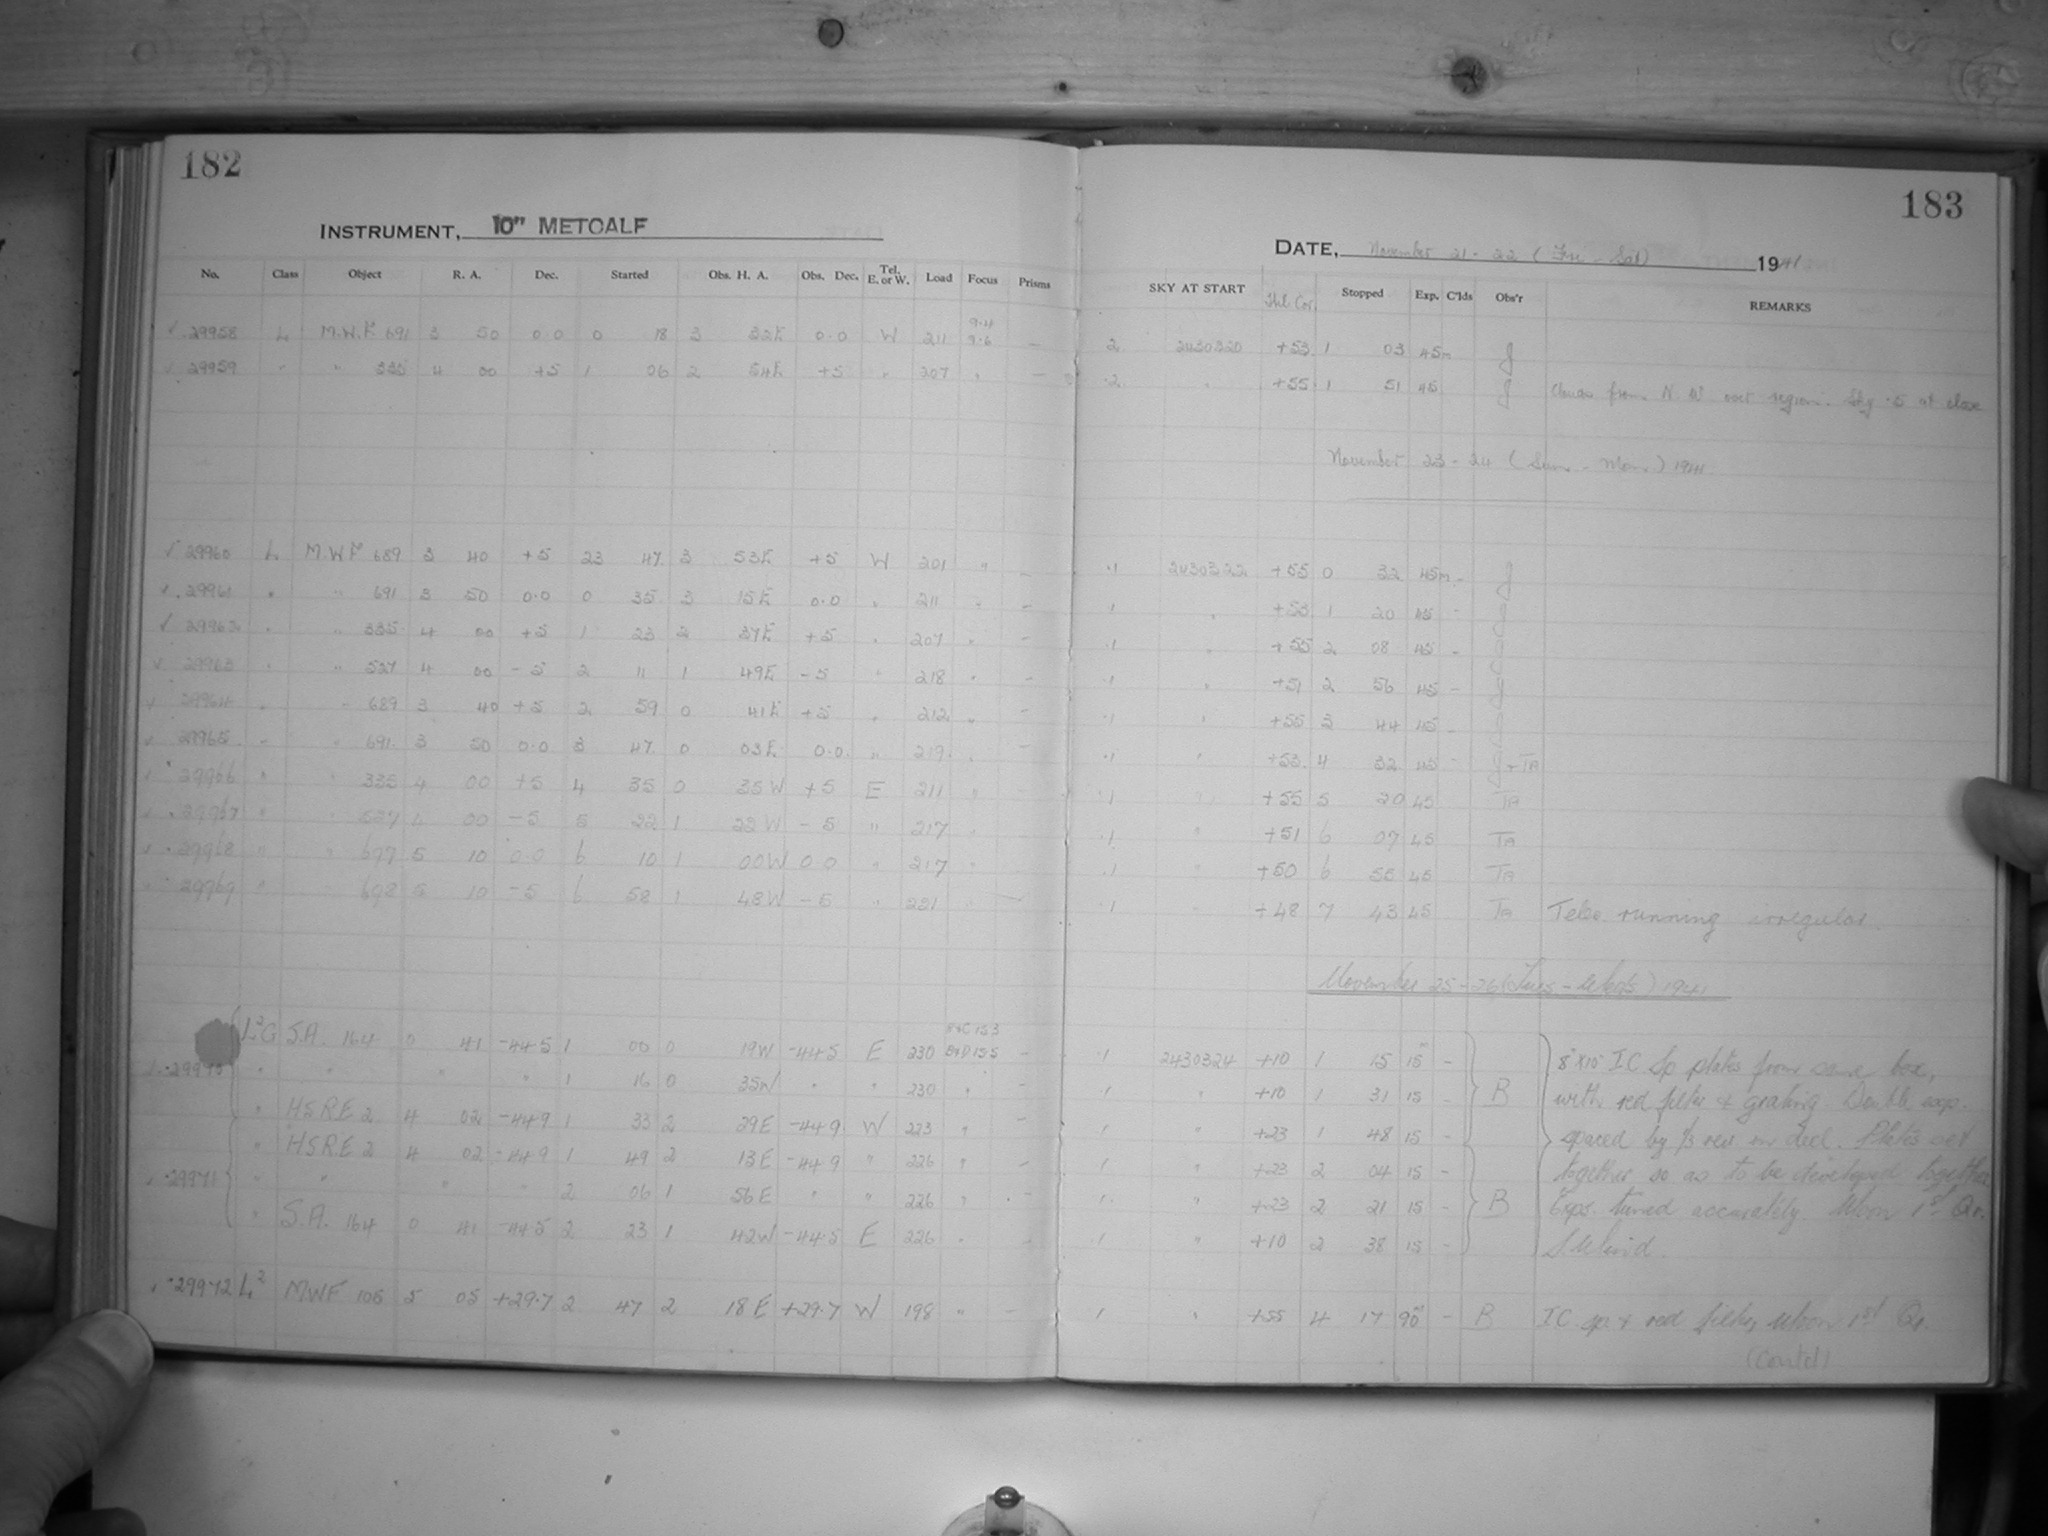 182
INSTRUMENT, 10" METCALF
No. Class Object R. A. Dec. Started Obs. H. A. Obs. Dec. Tel. E. or W. Load Focus Prisms
29958 L M.W.F. 691 3 50 0.0 0 18 3 32E 0.0 W 211 9.4 9.6 —
29959 " " 335 4 00 +5 1 06 2 54E +5 " 207 " —
29960 L M.W.F 689 3 40 +5 23 47 3 53E +5 W 201 " —
29961 " " 691 3 50 0.0 0 35 3 15E 0.0 " 211 " —
29962 " " 335 4 00 +5 1 23 2 37E +5 " 207 " —
29963 " " 527 4 00 -5 2 11 1 49E -5 " 218 " —
29964 " " 689 3 40 +5 2 59 0 41E +5 " 212 " —
29965 " " 691 3 50 0.0 3 47 0 03E 0.0 " 219 " —
29966 " " 335 4 00 +5 4 35 0 35W +5 E 211 "
29967 " " 527 4 00 -5 5 22 1 22W -5 " 217 "
29968 " " 697 5 10 0.0 6 10 1 00W 0 0 " 217 "
29969 " " 698 5 10 -5 6 58 1 48W -5 " 221 " —
L²G S.A. 164 0 41 -44.5 1 00 0 19W -44.5 E 230 —
29970 " " " " 1 16 0 35W " " 230 " —
" HSRE 2 4 02 -44.9 1 33 2 29E -44.9 W 223 "
" HSRE 2 4 02 -44.9 1 49 2 13E -44.9 " 226 " —
29971 " " " " 2 06 1 56E " " 226 " —
" S.A. 164 0 41 -44.5 2 23 1 42W -44.5 E 226 "
29972 L² MWF 105 5 05 +29.7 2 47 2 18E +29.7 W 198 " —
183
DATE, November 21-22 (Fri - Sat) 1941
SKY AT START Stopped Exp. C'lds Obs'r REMARKS
2 2430320 +53 1 03 45m J
.2 " +55 1 51 45 J Clouds from N.W. over region. Sky .5 at close
November 23-24 (Sun - Mon) 1941
.1 2430322 +55 0 32 45m - J
.1 " +53 1 20 45 - J
.1 " +55 2 08 45 - J
.1 " +51 2 56 45 - J
.1 " +55 3 44 45 - J
.1 " +53 4 32 45 - J + TA
.1 " +55 5 20 45 TA
.1 " +51 6 07 45 TA
.1 " +50 6 55 45 TA
.1 " +48 7 43 45 TA Tele running irregular
November 25-26 (Tues - Weds) 1941
.1 2430324 +10 1 15 15m - 8"x10" IC Sp plates from same box,
1 " +10 1 31 15 - B with red filter & grating. Double exp.
1 " +23 1 48 15 - spaced by ½ rev in decl. Plates set
1 " +23 2 04 15 - together so as to be developed together
1 " +23 2 21 15 - B Exps. timed accurately. Moon 1st Qr.
1 " +10 2 38 15 - S. Wind.
1 " +55 4 17 90m - B IC sp & red filter, Moon 1st Qr.
(Contd)